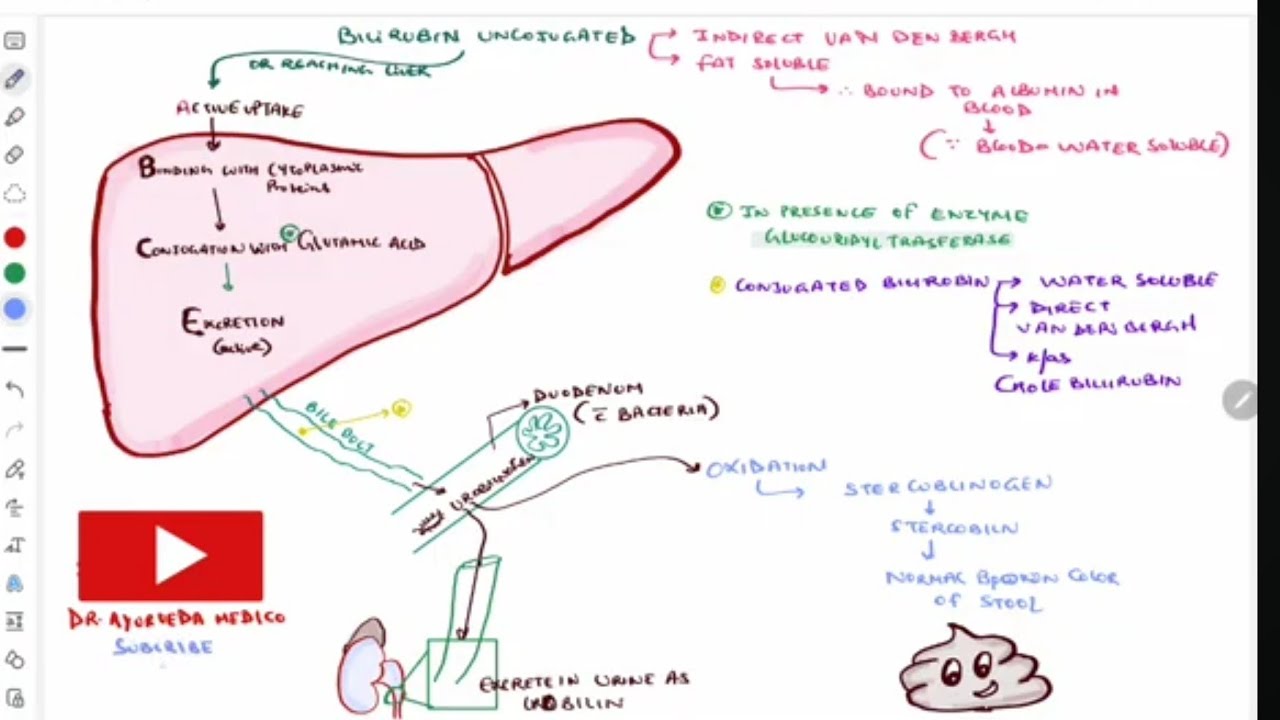 BILIRUBIN UNCOJUGATED
INDIRECT VAN DEN BERGH
FAT SOLUBLE
∴ BOUND TO ALBUMIN IN
BLOOD
(∵ BLOOD= WATER SOLUBLE)
OR REACHING LIVER
ACTIVE UPTAKE
BONDING WITH CYTOPLASMIC
PROTEINS
CONJOGATION WITH GLUTAMIC ACID
EXCRETION
(active)
IN PRESENCE OF ENZYME
GLUCOURIDYL TRASFERASE
CONJUGATED BILIROBIN
WATER SOLUBLE
DIRECT
VAN DEN BERGH
K/as
CHOLE BILIRUBIN
BILE DUCT
DUODENUM
(c̅ BACTERIA)
UROBILINOGEN
OXIDATION
STERCOBLINOGEN
STERCOBILN
NORMAL BROWN COLOR
OF STOOL
DR. AYURVEDA MEDICO
SUBCRIBE
EXCRETE IN URINE AS
UROBILIN